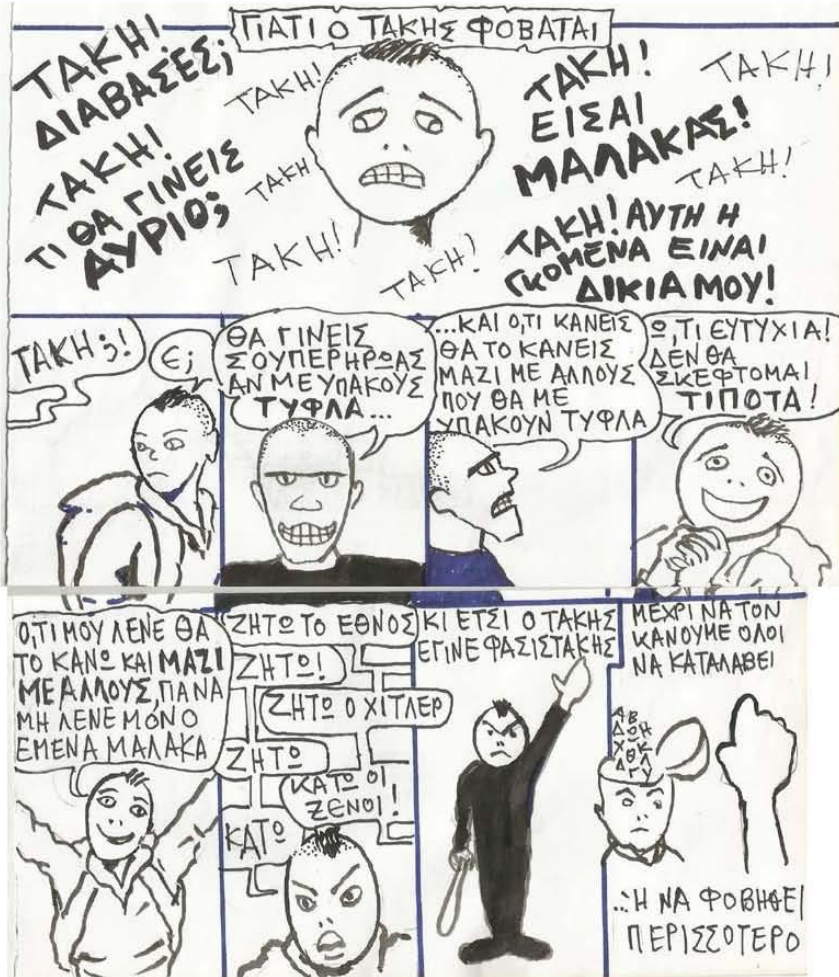 ΓΙΑΤΙ Ο ΤΑΚΗΣ ΦΟΒΑΤΑΙ
ΤΑΚΗ!
ΔΙΑΒΑΣΕΣ;
ΤΑΚΗ!
ΤΙ ΘΑ ΓΙΝΕΙΣ
ΑΥΡΙΟ;
ΤΑΚΗ!
ΤΑΚΗ
ΤΑΚΗ!
ΤΑΚΗ!
ΤΑΚΗ!
ΕΙΣΑΙ
ΜΑΛΑΚΑΣ!
ΤΑΚΗ!
ΤΑΚΗ!
ΤΑΚΗ! ΑΥΤΗ Η
ΓΚΟΜΕΝΑ ΕΙΝΑΙ
ΔΙΚΙΑ ΜΟΥ!
ΤΑΚΗ;!
Ε;
ΘΑ ΓΙΝΕΙΣ
ΣΟΥΠΕΡΗΡΩΑΣ
ΑΝ ΜΕ ΥΠΑΚΟΥΣ
ΤΥΦΛΑ...
...ΚΑΙ Ο,ΤΙ ΚΑΝΕΙΣ
ΘΑ ΤΟ ΚΑΝΕΙΣ
ΜΑΖΙ ΜΕ ΑΛΛΟΥΣ
ΠΟΥ ΘΑ ΜΕ
ΥΠΑΚΟΥΝ ΤΥΦΛΑ
Ω, ΤΙ ΕΥΤΥΧΙΑ!
ΔΕΝ ΘΑ
ΣΚΕΦΤΟΜΑΙ
ΤΙΠΟΤΑ!
Ο,ΤΙ ΜΟΥ ΛΕΝΕ ΘΑ
ΤΟ ΚΑΝΩ ΚΑΙ ΜΑΖΙ
ΜΕ ΑΛΛΟΥΣ, ΓΙΑ ΝΑ
ΜΗ ΛΕΝΕ ΜΟΝΟ
ΕΜΕΝΑ ΜΑΛΑΚΑ
ΖΗΤΩ ΤΟ ΕΘΝΟΣ
ΖΗΤΩ!
ΖΗΤΩ Ο ΧΙΤΛΕΡ
ΖΗΤΩ
ΚΑΤΩ ΟΙ
ΞΕΝΟΙ!
ΚΑΤΩ
ΚΙ ΕΤΣΙ Ο ΤΑΚΗΣ
ΕΓΙΝΕ ΦΑΣΙΣΤΑΚΗΣ
ΜΕΧΡΙ ΝΑ ΤΟΝ
ΚΑΝΟΥΜΕ ΟΛΟΙ
ΝΑ ΚΑΤΑΛΑΒΕΙ
...Η ΝΑ ΦΟΒΗΘΕΙ
ΠΕΡΙΣΣΟΤΕΡΟ